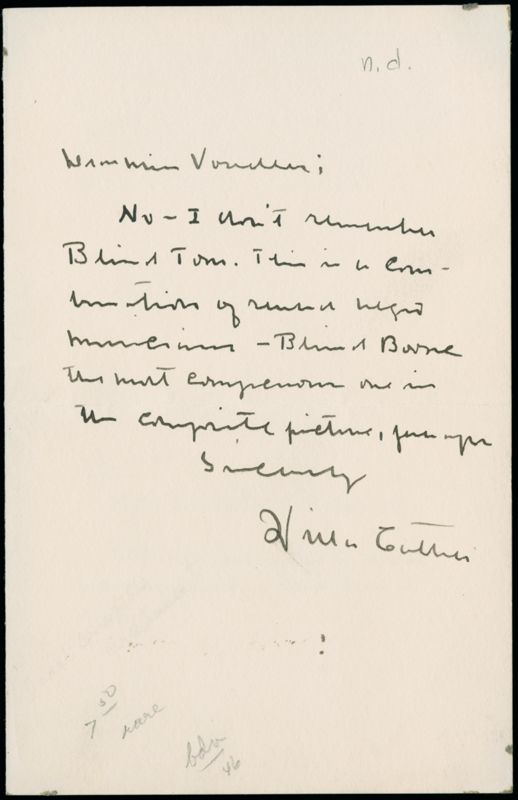 n.d.
Dear Miss Voucher;
No – I don't remember
Blind Tom. This is a com-
bination of several negro
musicians – Blind Boone
the most conspicuous one in
the composite picture, perhaps
Sincerely
Willa Cather
7 50
rare